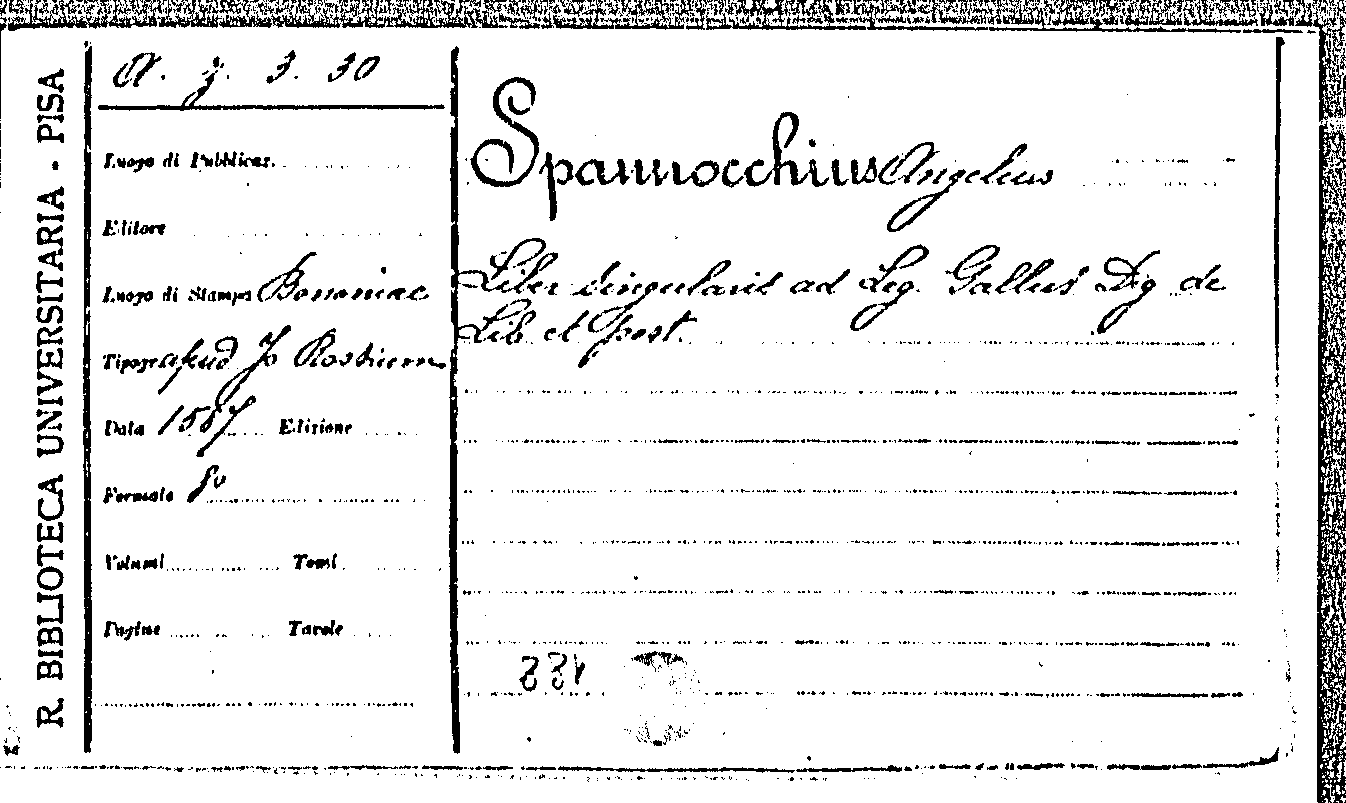 R. BIBLIOTECA UNIVERSITARIA - PISA
A. z. 3. 30
Luogo di Pubblicaz.
Editore
Luogo di Stampa Bononiae
Tipogr. apud Jo Rossium
Data 1587 Edizione
Formato 8o
Volumi Tomi
Pagine Tavole
Spannocchius Angelius
Liber singularis ad Leg. Gallus Dig de
Lib et post.